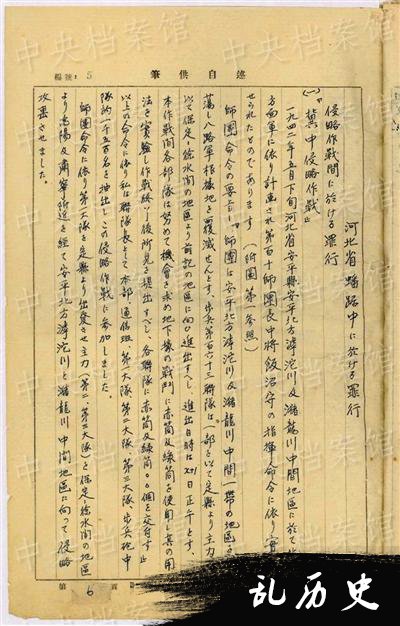 述自供筆
編號: 5
河北省蟠踞中に於ける罪行
侵略作戰間に於ける罪行
(一)「冀中侵略作戰」
一九四二年五月下旬河北省安平縣安平北方滹沱川及潴龍川中間地區に於て
方面軍に依り計画され第百十師團長中將飯沼守の指揮命令に依り實
せられたものであります (附圖第一参照)
師團命令の要旨 師團は安平北方滹沱川及潴龍川中間一帯の地區を
蕩し八路軍根據地を覆滅せんとす、歩兵第百六十三聯隊は一部を以て定縣より主力
以て保定、徐水間の地區より前記の地區に向ひ進出すべし 進出日時は 日正午とす、
本作戰間各部隊は努めて機會を求め地下壕の戰鬥に赤筒及緑筒を使用し其の用
法を實驗し作戰終了後所見を提出すべし、各聯隊に赤筒及緑筒 個を交付す」
以上の命令に依り私は聯隊長として本部、通信班、第一大隊、第二大隊、第三大隊、歩兵砲中
隊約一千五百名を抽出しこの侵略作戰に参加しました。
師團命令に依り第一大隊を定縣より出発させ主力(第二、第三大隊)を保定、徐水間の地區
より高陽及肅寧附近を経て安平北方滹沱川と潴龍川中間地區に向って侵略
攻撃させました。
第 6 頁
中央档案馆
中央档案馆
中央档案馆
乱历史